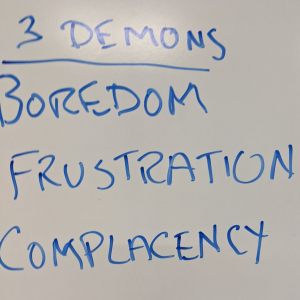 3 DEMONS
BOREDOM
FRUSTRATION
COMPLACENCY